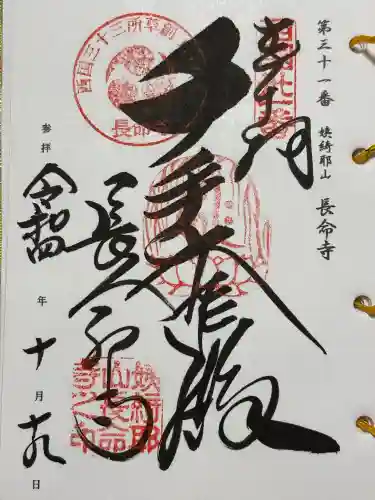 第三十一番 姨綺耶山 長命寺
奉拝
千手大悲殿
長命寺
参拝 令和四年十月十九日
西国三十三所草創
長命寺
姨綺耶
山長命
寺之印